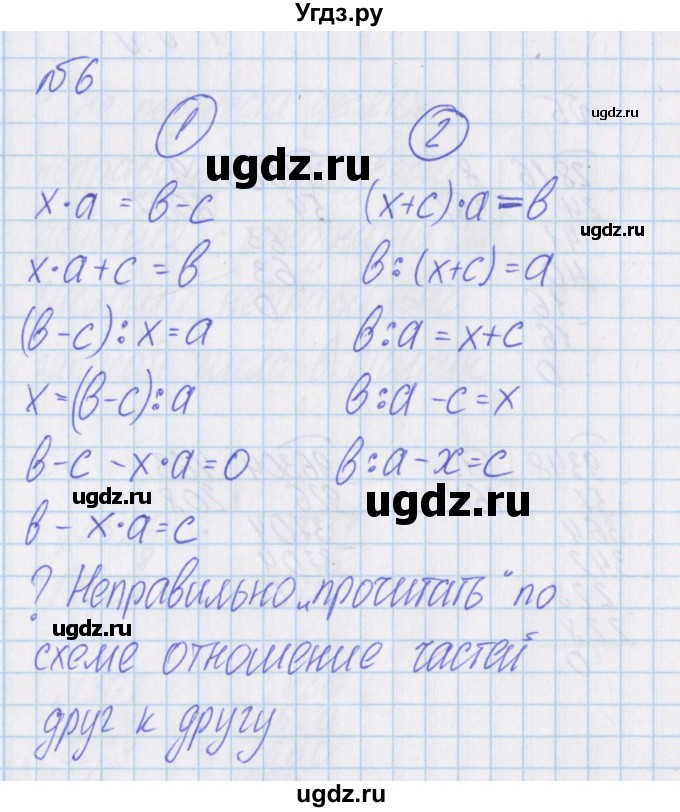 Угдз.ру
№6
1
2
ugdz.ru
ugdz.ru
x·a = в-с
(x+c)·a=в
ugdz.ru
x·a+c = в
в:(x+c)=a
(в-с):x=a
в:a=x+c
x=(в-с):a
в:a-c=x
в-с-x·a=0
в:a-x=c
ugdz.ru
ugdz.ru
в-x·a=c
? Неправильно „прочитать“ по
ugdz.ru
схеме отношение частей
друг к другу
ugdz.ru